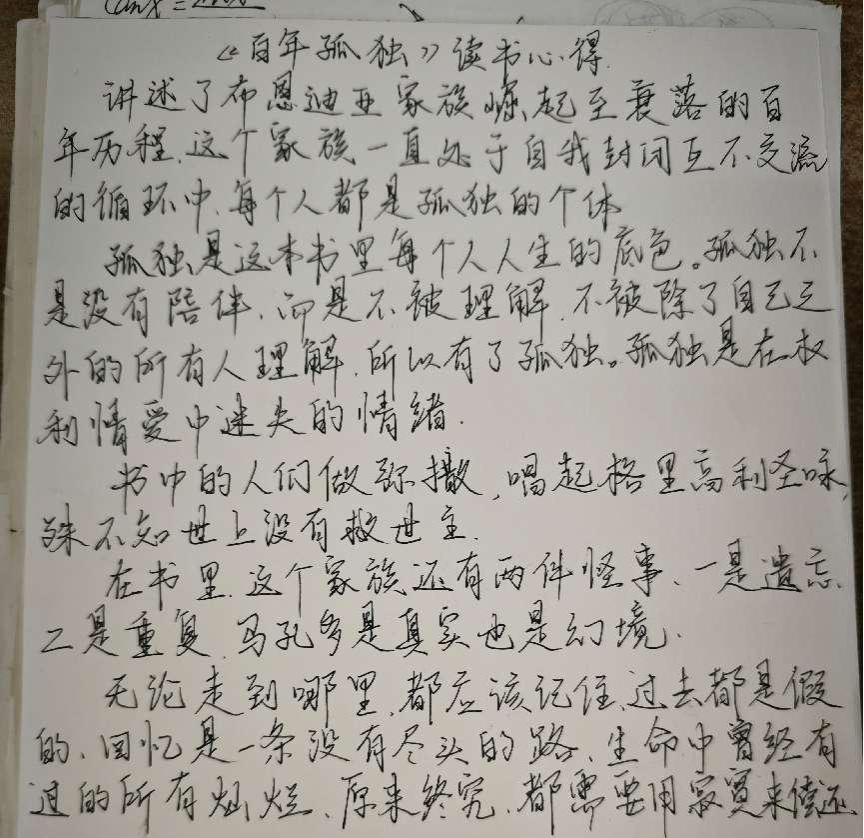 《百年孤独》读书心得
讲述了布恩迪亚家族崛起至衰落的百
年历程,这个家族一直处于自我封闭互不交流
的循环中,每个人都是孤独的个体
孤独是这本书里每个人人生的底色。孤独不
是没有陪伴,而是不被理解,不被除了自己之
外的所有人理解,所以有了孤独。孤独是在权
利情爱中迷失的情绪.
书中的人们做弥撒,唱起格里高利圣咏,
殊不知世上没有救世主.
在书里,这个家族还有两件怪事、一是遗忘、
二是重复,马孔多是真实也是幻境.
无论走到哪里,都应该记住,过去都是假
的、回忆是一条没有尽头的路、生命中曾经有
过的所有灿烂、原来终究,都需要用寂寞来偿还.